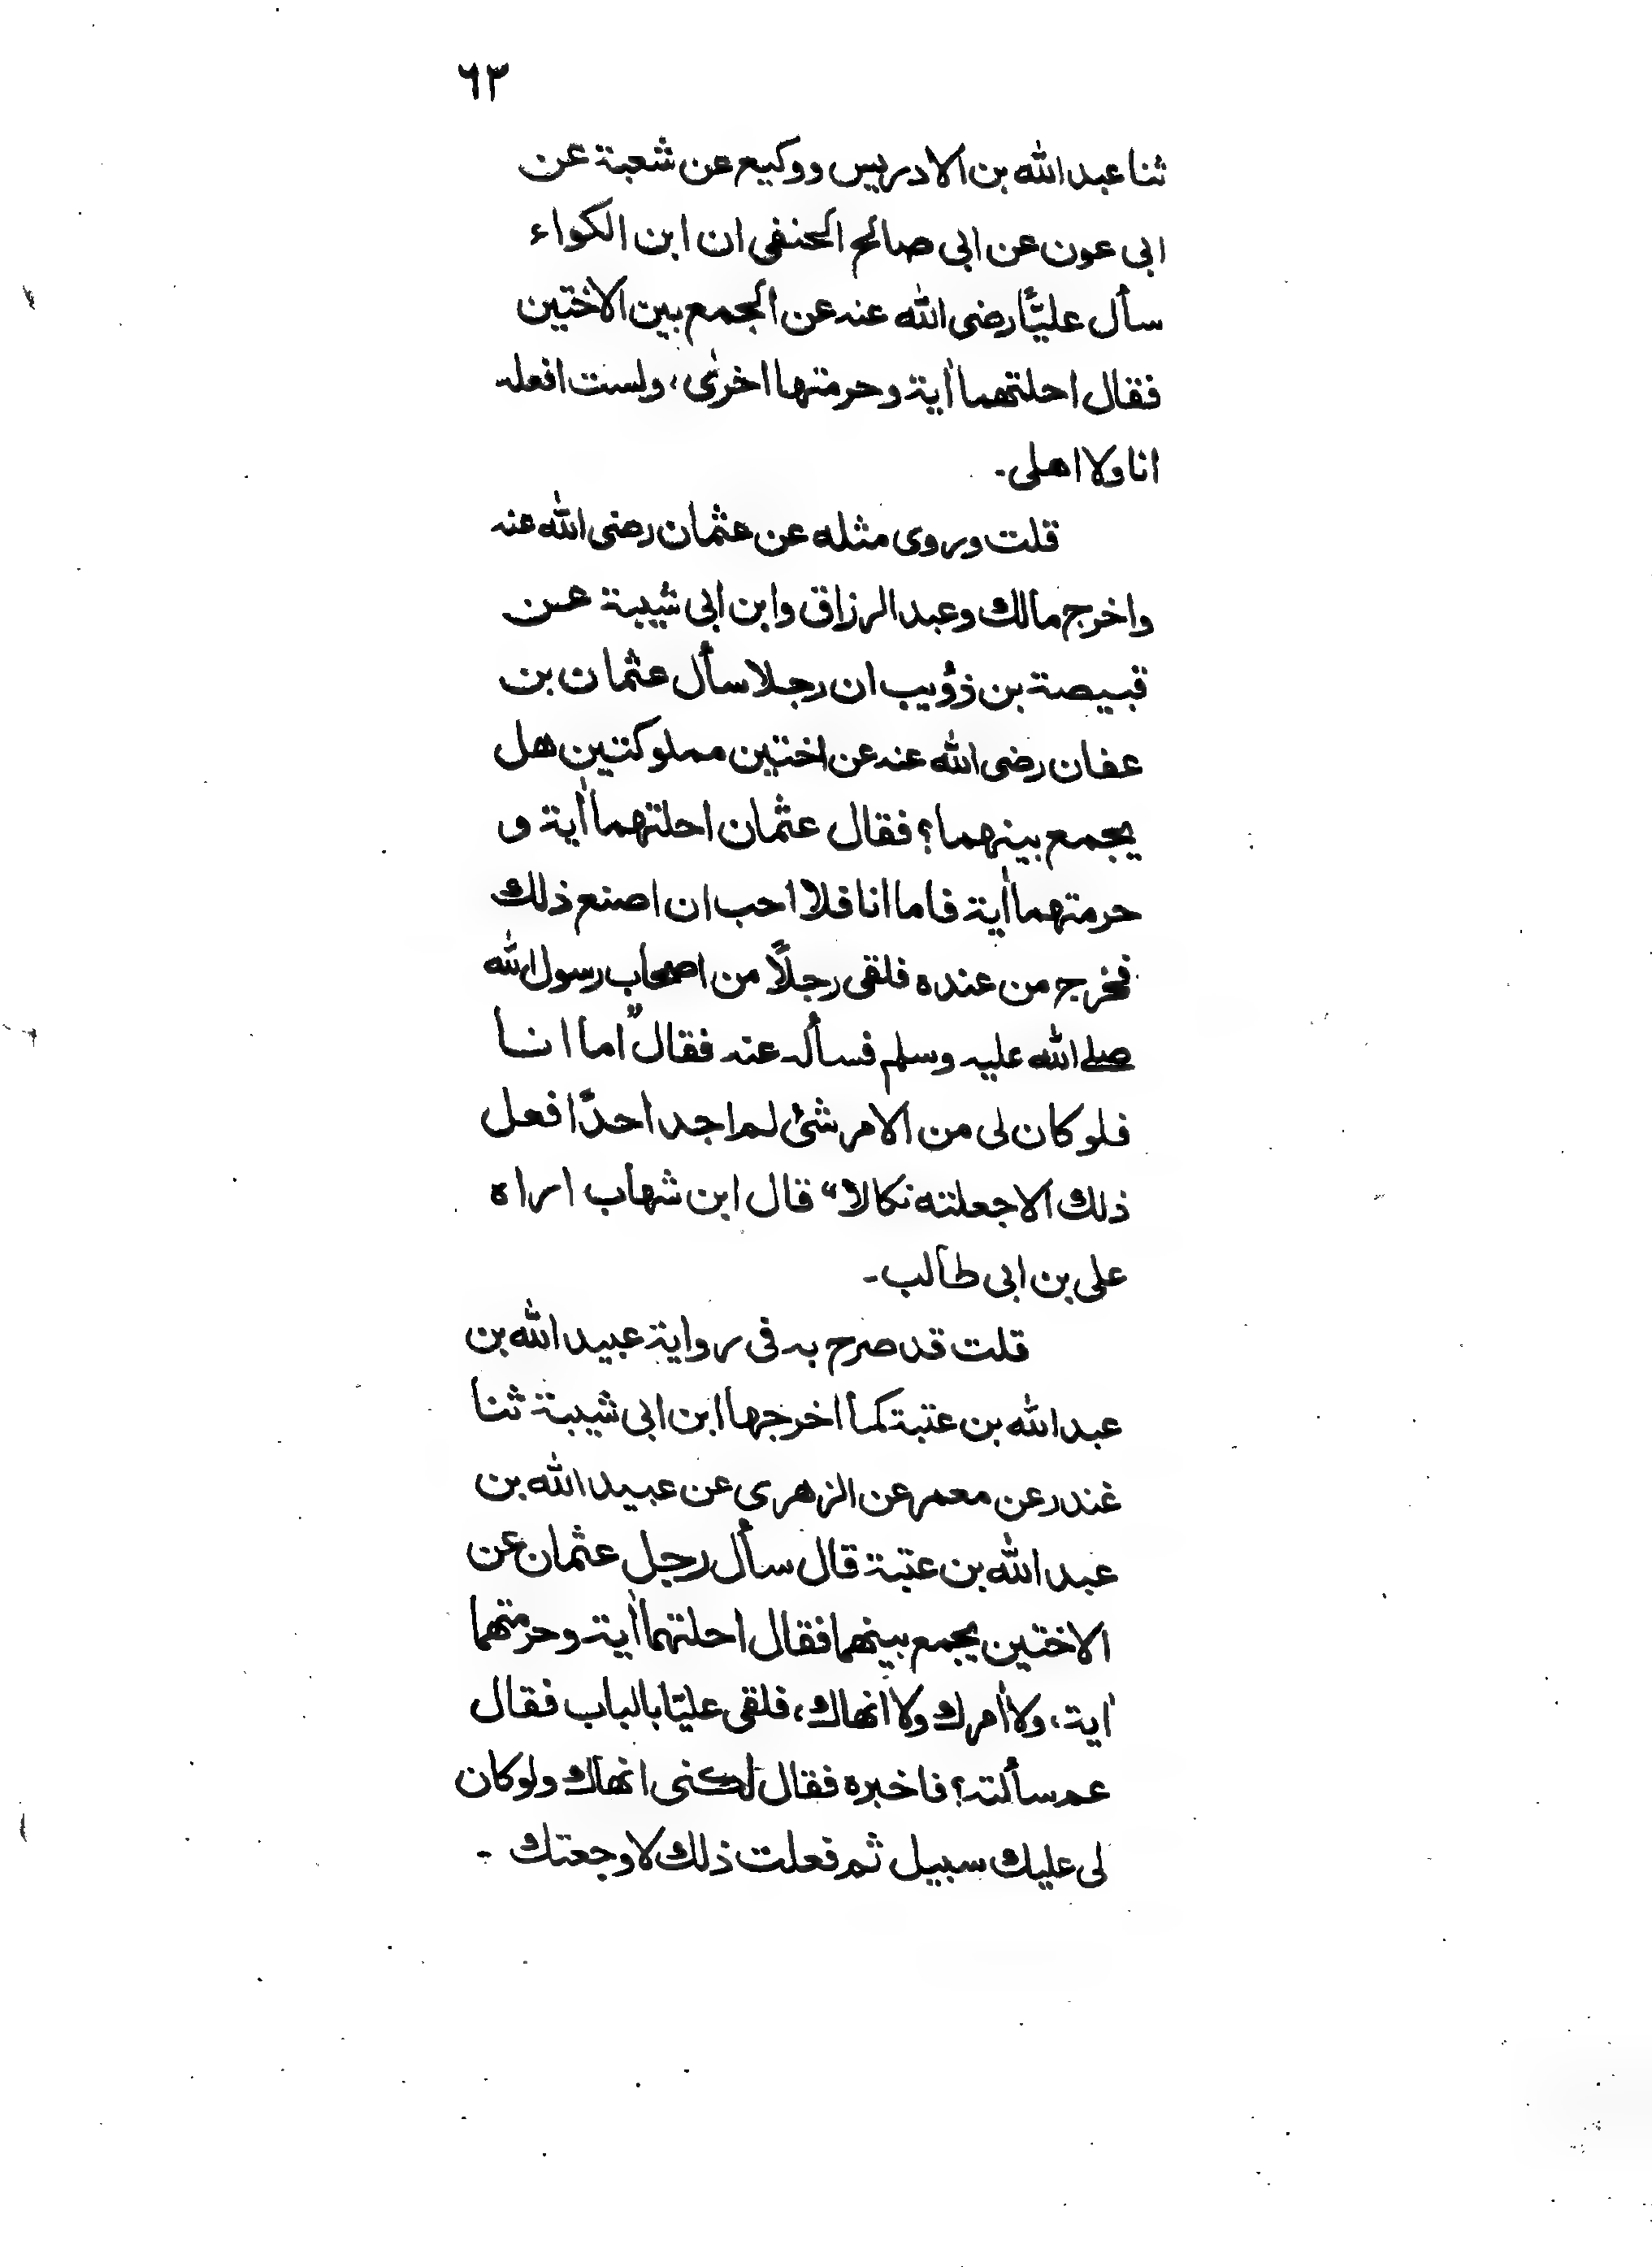 ٦٣
ثنا عبد الله بن الادريس ووكيع عن شعبة عن
ابى عون عن ابى صالح الحنفى ان ابن الكواء
سأل عليًّا رضى الله عنه عن الجمع بين الاختين
فقال احلتهما اٰية وحرمتها اخرٰى، ولست افعله
انا ولا اهلى۔
قلت وروى مثله عن عثمان رضى الله عنه
واخرج مالك وعبد الرزاق وابن ابى شيبة عن
قبيصة بن ذؤيب ان رجلا سأل عثمان بن
عفان رضى الله عنه عن اختين مملوكتين هل
يجمع بينهما؟ فقال عثمان احلتهما اٰية و
حرمتهما اٰية فاما انا فلا احب ان اصنع ذلك
فخرج من عنده فلقى رجلًا من اصحاب رسول الله
صلے الله عليه وسلم فسأله عنه فقال ”اما انا
فلو كان لى من الامر شئ لم اجد احدًا فعل
ذلك الا جعلته نكالا“ قال ابن شهاب اراه
على بن ابى طالب۔
قلت قد صرح به فى رواية عبيد الله بن
عبد الله بن عتبة كما اخرجها ابن ابى شيبة ثنا
غندر عن معمر عن الزهرى عن عبيد الله بن
عبد الله بن عتبة قال سأل رجل عثمان عن
الاختين يجمع بينهما فقال احلتهما اٰية وحرمتهما
اٰية، ولا اٰمرك ولا انهاك، فلقى عليّا بالباب فقال
عم سألته؟ فاخبره فقال لكنى انهاك ولو كان
لى عليك سبيل ثم فعلت ذلك لاوجعتك ۔